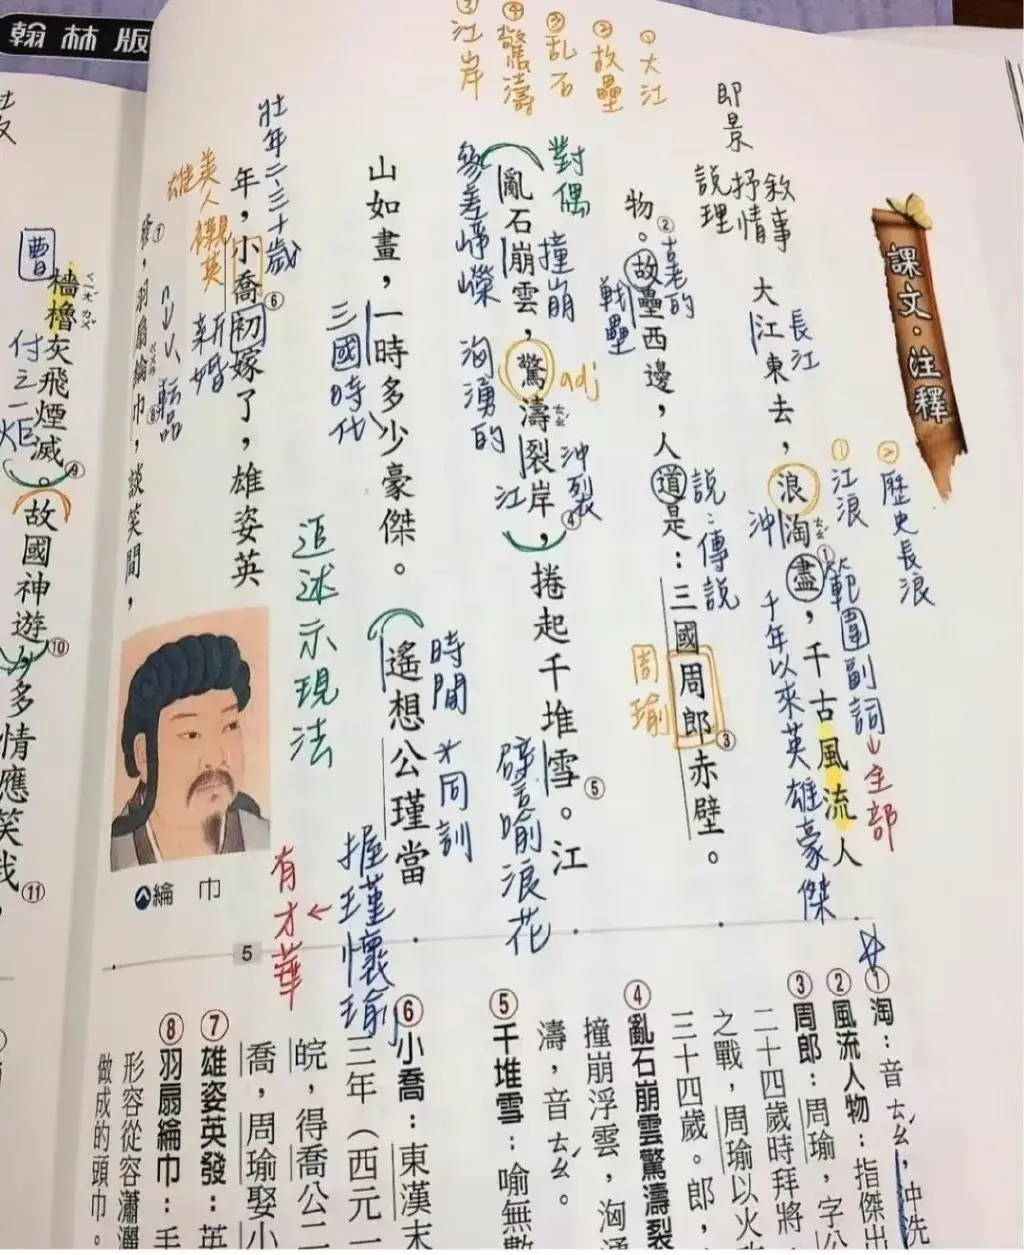 翰林版
課文.注釋
大江東去,浪淘盡,千古風流人
物。故壘西邊,人道是:三國周郎赤壁。
亂石崩雲,驚濤裂岸,捲起千堆雪。江
山如畫,一時多少豪傑。遙想公瑾當
年,小喬初嫁了,雄姿英
發,羽扇綸巾,談笑間,
檣櫓灰飛煙滅。故國神遊,多情應笑我,
①大江
②故壘
③乱石
④驚濤
⑤江岸
即景
敘事
抒情
說理
長江
①江浪
②歷史長浪
沖
ㄊㄠˊ
範圍副詞→全部
千年以來英雄豪傑
老的
戰壘
說:傳說
周瑜
對偶
撞崩
參差崢嶸
adj
洶湧的
ㄊㄠˊ
沖裂
江
譬喻浪花
三國時代
時間
*同訓
握瑾懷瑜
→有才華
追述示現法
壯年二、三十歲
美人襯英雄
新婚
曹
ㄑㄧㄤˊ ㄌㄨˇ
付之一炬
綸巾
5
①淘:音ㄊㄠˊ,沖洗
②風流人物:指傑出
③周郎:周瑜,字公
二十四歲時拜將
之戰,周瑜以火攻
三十四歲。郎,
④亂石崩雲驚濤裂
撞崩浮雲,洶湧
濤,音ㄊㄠˊ。
⑤千堆雪:喻無數
⑥小喬:東漢末
三年(西元一
皖,得喬公二
喬,周瑜娶小
⑦雄姿英發:英
⑧羽扇綸巾:手
形容從容瀟灑
做成的頭巾。